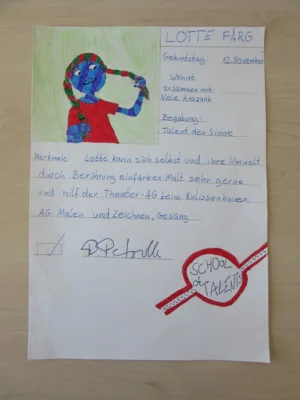 LOTTE FARG
Geburtstag 12. November
Wohnt
zusammen mit:
Nele Arazank
Begabung:
Talent der Sinne
Merkmale: Lotte kann sich selbst und ihre Umwelt
durch Berührung einfärben. Malt sehr gerne
und hilf der Theater-AG beim Kulissenbauen.
AG: Malen und Zeichnen, Gesang
SCHOOL
of
TALENTS